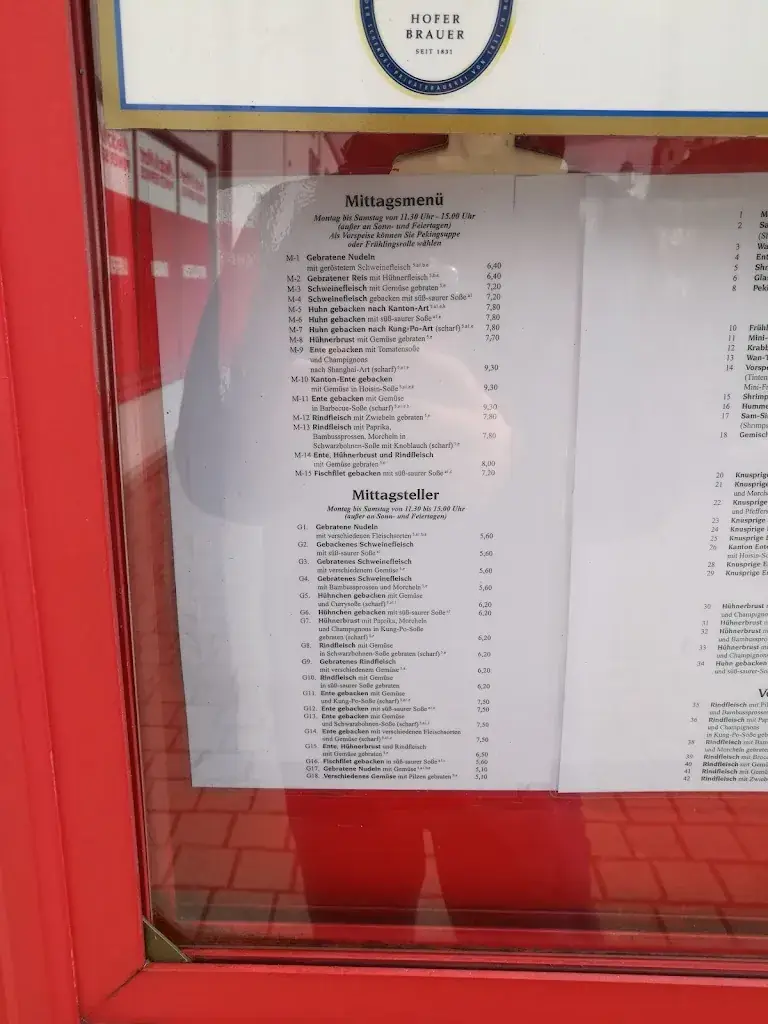 HOFER
BRAUER
SEIT 1831
Mittagsmenü
Montag bis Samstag von 11.30 Uhr - 15.00 Uhr
(außer an Sonn- und Feiertagen)
Als Vorspeise können Sie Pekingsuppe
oder Frühlingsrolle wählen
M-1 Gebratene Nudeln
mit geröstetem Schweinefleisch 6,40
M-2 Gebratener Reis mit Hühnerfleisch 6,40
M-3 Schweinefleisch mit Gemüse gebraten 7,20
M-4 Schweinefleisch gebacken mit süß-saurer Soße 7,20
M-5 Huhn gebacken nach Kanton-Art 7,80
M-6 Huhn gebacken mit süß-saurer Soße 7,80
M-7 Huhn gebacken nach Kung-Po-Art (scharf) 7,80
M-8 Hühnerbrust mit Gemüse gebraten 7,70
M-9 Ente gebacken mit Tomatensoße
und Champignons
nach Shanghai-Art (scharf) 9,30
M-10 Kanton-Ente gebacken
mit Gemüse in Hoisin-Soße 9,30
M-11 Ente gebacken mit Gemüse
in Barbecue-Soße (scharf) 9,30
M-12 Rindfleisch mit Zwiebeln gebraten 7,80
M-13 Rindfleisch mit Paprika,
Bambussprossen, Morcheln in
Schwarzbohnen-Soße mit Knoblauch (scharf) 7,80
M-14 Ente, Hühnerbrust und Rindfleisch
mit Gemüse gebraten 8,00
M-15 Fischfilet gebacken mit süß-saurer Soße 7,20
Mittagsteller
Montag bis Samstag von 11.30 bis 15.00 Uhr
(außer an Sonn- und Feiertagen)
G1. Gebratene Nudeln
mit verschiedenen Fleischsorten 5,60
G2. Gebackenes Schweinefleisch
mit süß-saurer Soße 5,60
G3. Gebratenes Schweinefleisch
mit verschiedenem Gemüse 5,60
G4. Gebratenes Schweinefleisch
mit Bambussprossen und Morcheln 5,60
G5. Hühnchen gebacken mit Gemüse
und Currysoße (scharf) 6,20
G6. Hühnchen gebacken mit süß-saurer Soße 6,20
G7. Hühnerbrust mit Paprika, Morcheln
und Champignons in Kung-Po-Soße
gebraten (scharf) 6,20
G8. Rindfleisch mit Gemüse
in Schwarzbohnen-Soße gebraten (scharf) 6,20
G9. Gebratenes Rindfleisch
mit verschiedenem Gemüse 6,20
G10. Rindfleisch mit Gemüse
in süß-saurer Soße gebraten 6,20
G11. Ente gebacken mit Gemüse
und Kung-Po-Soße (scharf) 7,50
G12. Ente gebacken mit süß-saurer Soße 7,50
G13. Ente gebacken mit Gemüse
und Schwarzbohnen-Soße (scharf) 7,50
G14. Ente gebacken mit verschiedenen Fleischsorten
und Gemüse (scharf) 7,50
G15. Ente, Hühnerbrust und Rindfleisch
mit Gemüse gebraten 6,50
G16. Fischfilet gebacken in süß-saurer Soße 5,60
G17. Gebratene Nudeln mit Gemüse 5,10
G18. Verschiedenes Gemüse mit Pilzen gebraten 5,10
1
2
3
4
5
6
8
10
11 Mini-
12
13
14
15 Shrimp
16
17
18
20 Knusprige
21 Knusprige
22 Knusprige
23 Knusprige
24 Knusprige
25 Knusprige
26 Kanton
28 Knusprige
29 Knusprige
30 Hühnerbrust
31 Hühnerbrust
32 Hühnerbrust
33 Hühnerbrust
34 Huhn
35 Rindfleisch
36 Rindfleisch
und Champignons
38 Rindfleisch
39 Rindfleisch
40 Rindfleisch
41 Rindfleisch
42 Rindfleisch